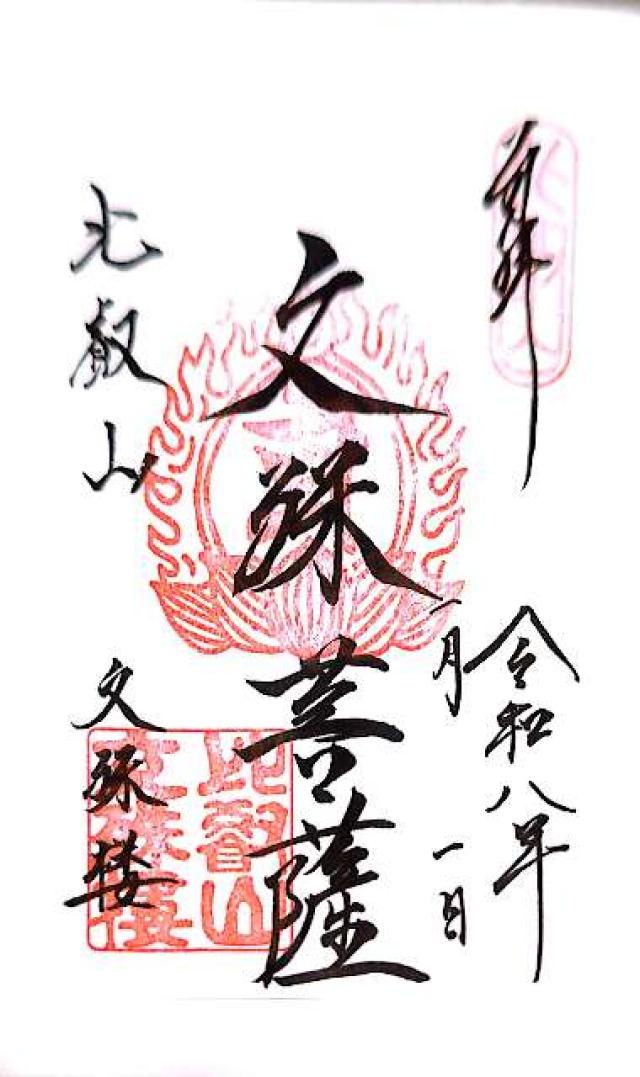 奉拝
令和八年
一月
一日
文殊菩薩
比叡山
文殊楼
比叡山
文殊楼